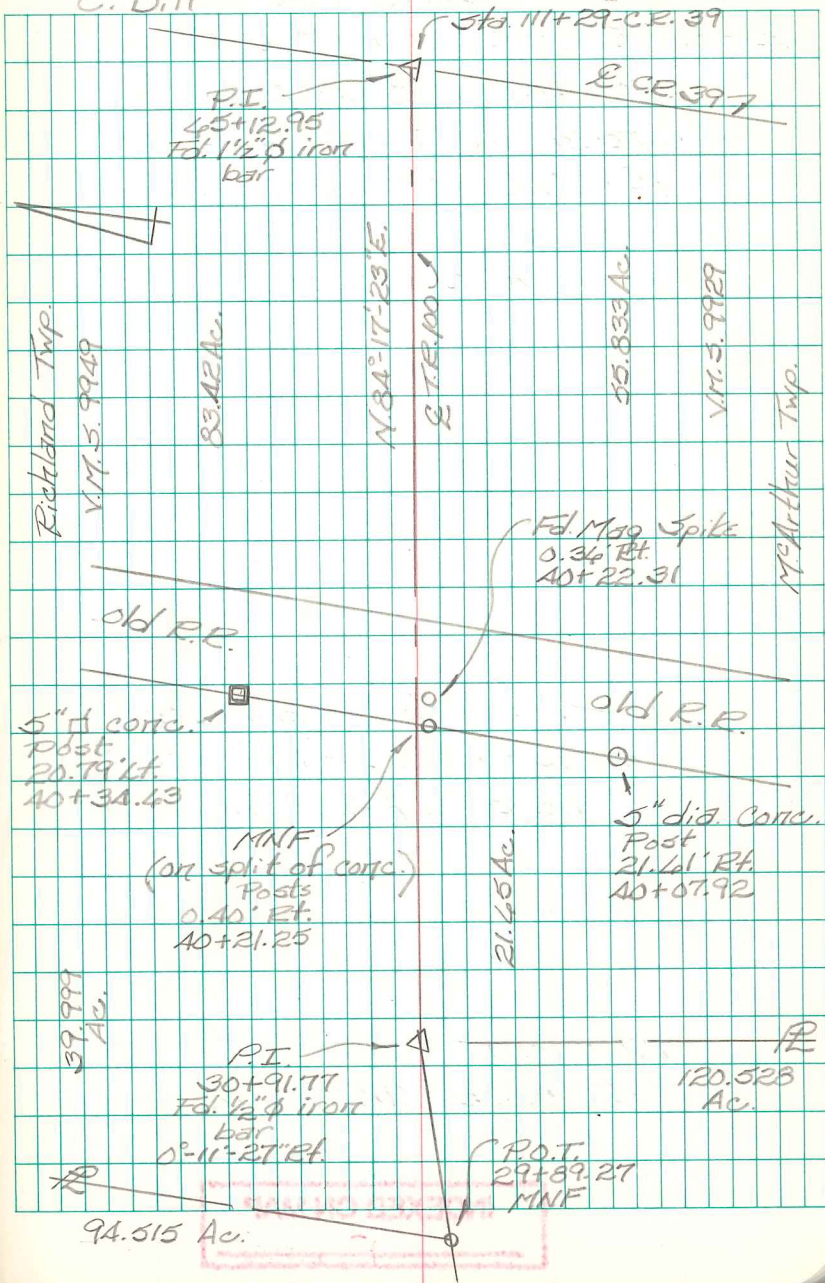 C. Dill
Sta. 111+29-C.R. 39
℄ C.R. 39
P.I.
65+12.95
Fd. 1½"ø iron
bar
Richland Twp.
V.M.S. 9949
83.42 Ac.
N.84°-17'-23"E.
℄ T.R. 100
55.833 Ac.
V.M.S. 9929
McArthur Twp.
Fd. Mag Spike
0.36' Rt.
40+22.31
Old R.R.
Old R.R.
5"□ conc.
Post
20.79' Lt.
40+34.63
MNF
(on split of conc.)
Posts
0.40' Rt.
40+21.25
5" dia. conc.
Post
21.61' Rt.
40+07.92
21.65 Ac.
39.999
Ac.
P.I.
30+91.77
Fd. ½"ø iron
bar
0°-11'-27" Rt.
P.O.T.
29+89.27
MNF
PL
120.528
Ac.
PL
94.515 Ac.